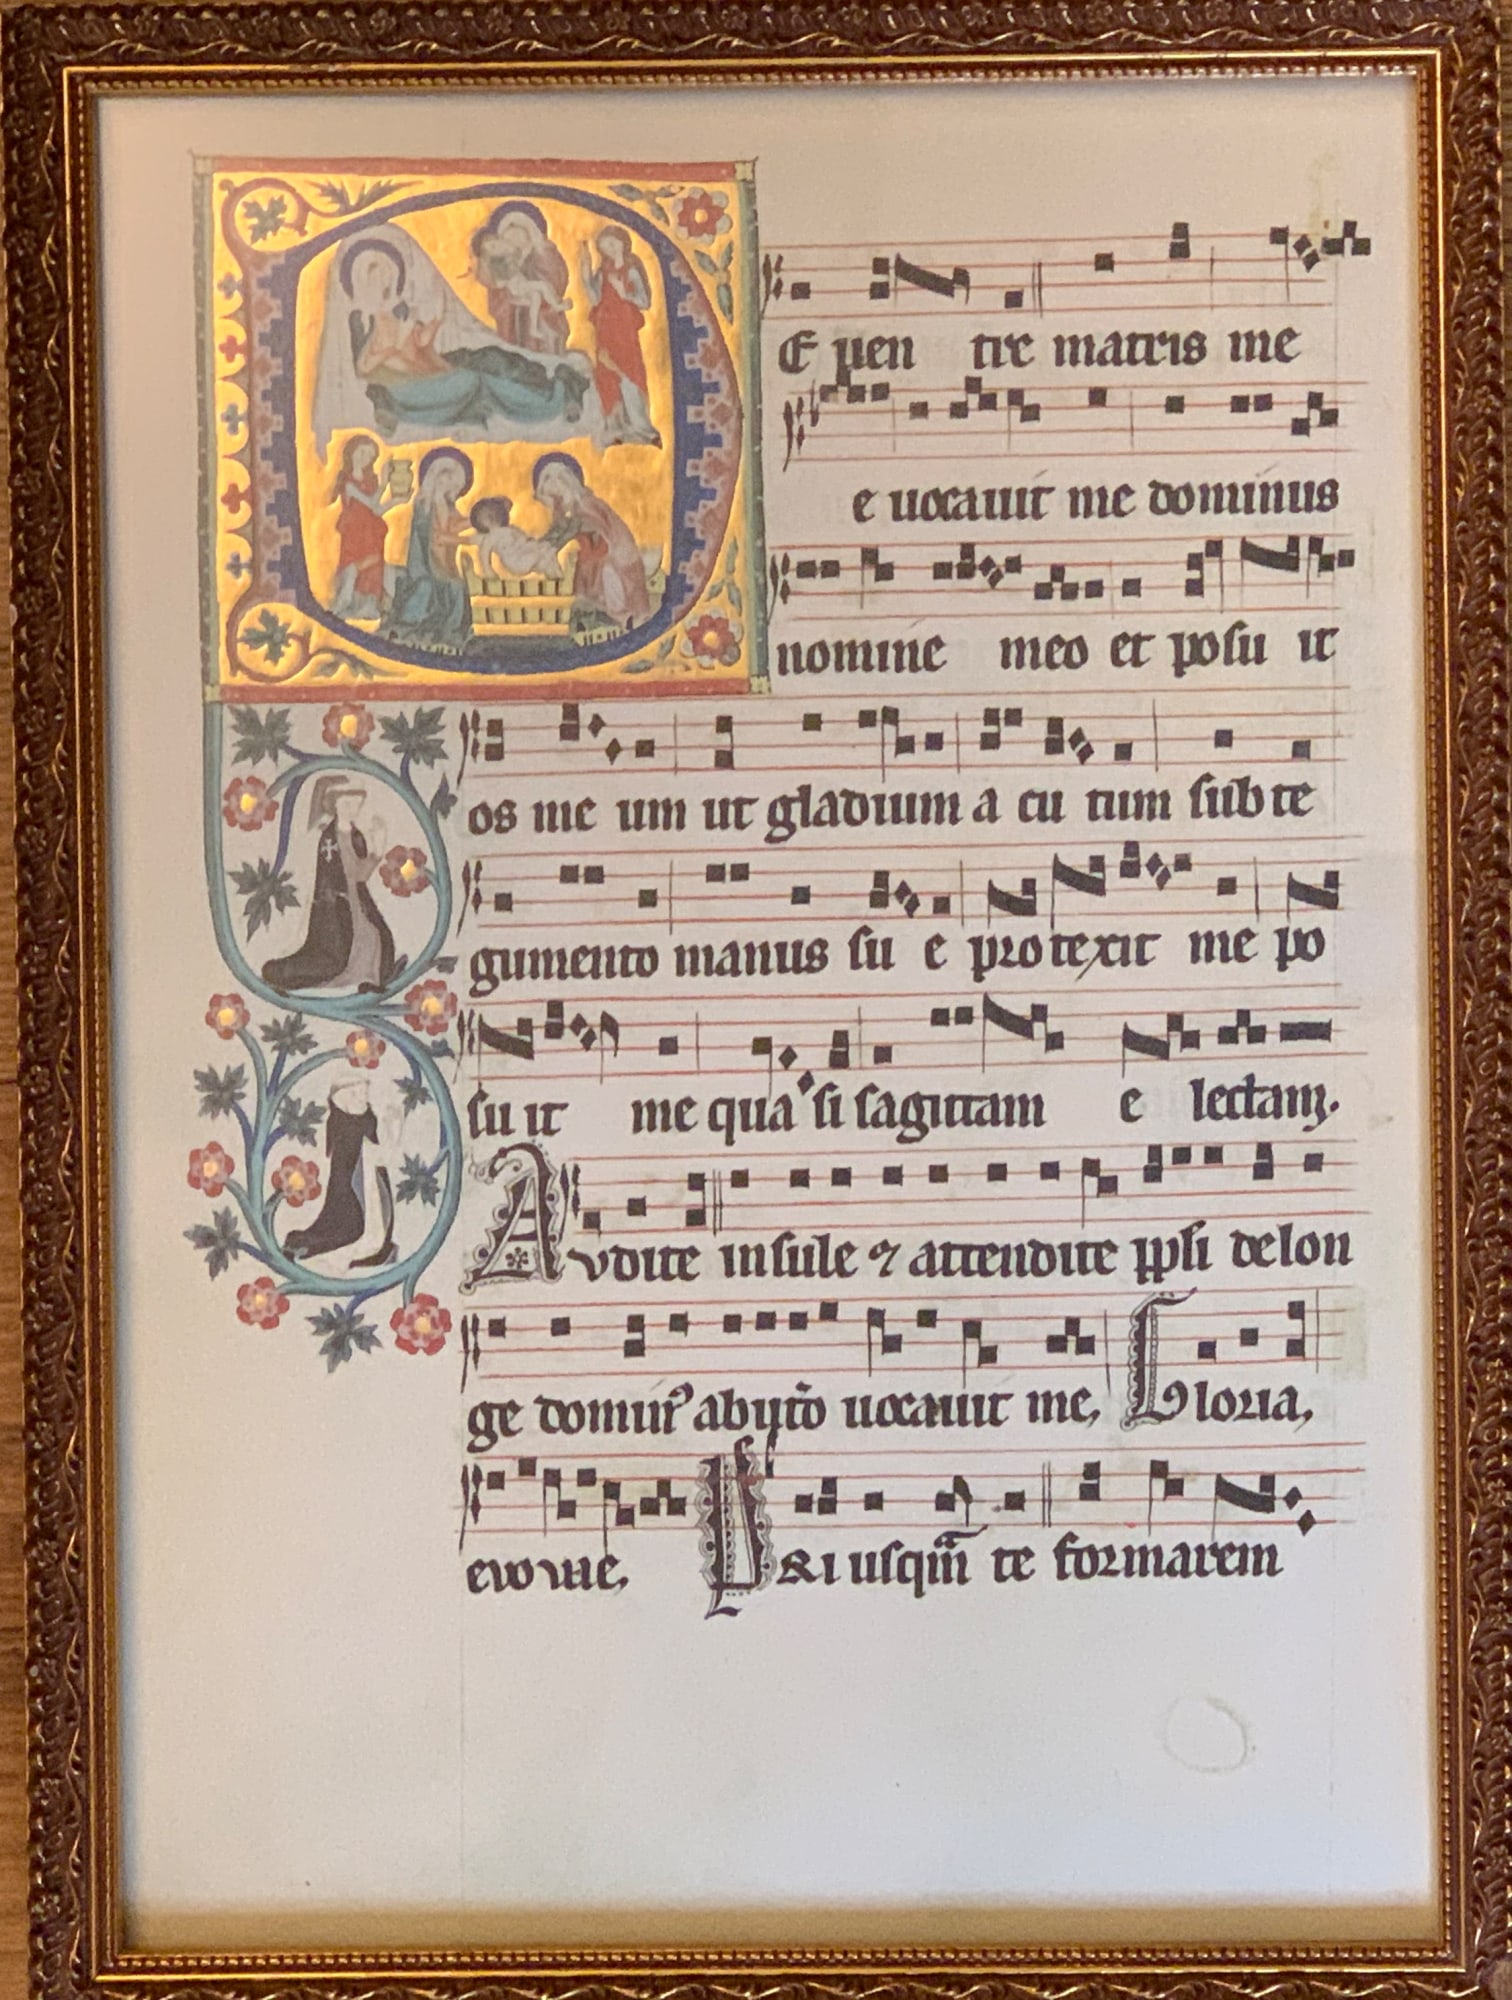 DE uen tre matris me
e uocauit me dominus
nomine meo et posu it
os me um ut gladium a cu tum sub te
gumento manus su e protexit me po
su it me qua si sagittam e lectam.
Audite insule ⁊ attendite ppli de lon
ge domin⁹ ab utͦo uocauit me, Gloria,
evovae, Priusqm̄ te formarem